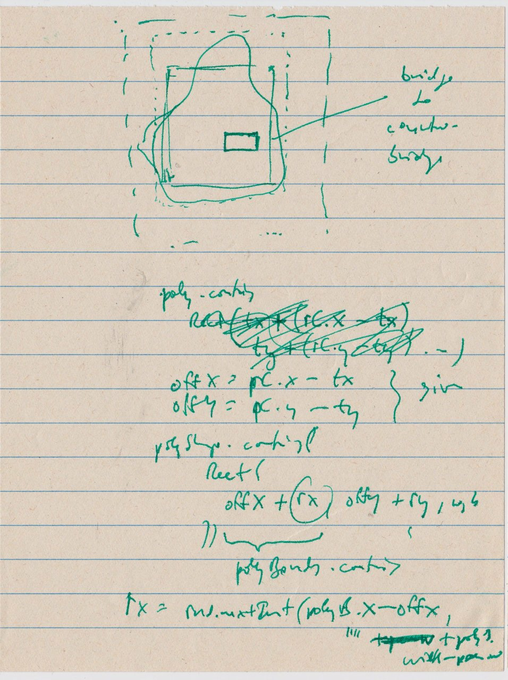 bridge
to
counter-
bridge
poly.contains
Rect(tx + (rC.x - tx)
ty + (rC.y - ty) . -)
offX = pC.x - tx
offy = pC.y - ty } given
polyShape.contains(
Rect(
offX + (rx), offy + ry, w,h
))
polyBounds.contains
rx = rnd.nextInt(polyB.x - offX,
"" + polyB.
width -